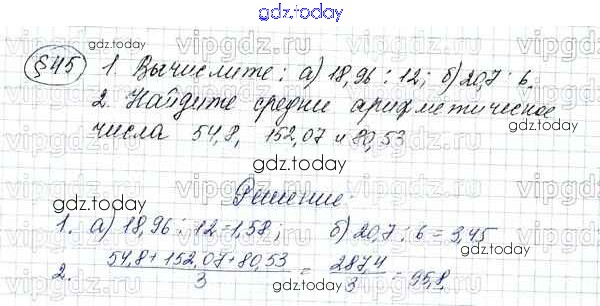 gdz.today
§45 1. Вычислите: а) 18,96 : 12; б) 20,7 : 6.
2. Найдите средние арифметическое
числа 54,8, 152,07 и 80,53
Решение.
1. а) 18,96 : 12 = 1,58; б) 20,7 : 6 = 3,45
2. (54,8+152,07+80,53)/3 = 287,4/3 = 95,8.
gdz.today
gdz.today
gdz.today
gdz.today
gdz.today
gdz.today
vipgdz.ru
vipgdz.ru